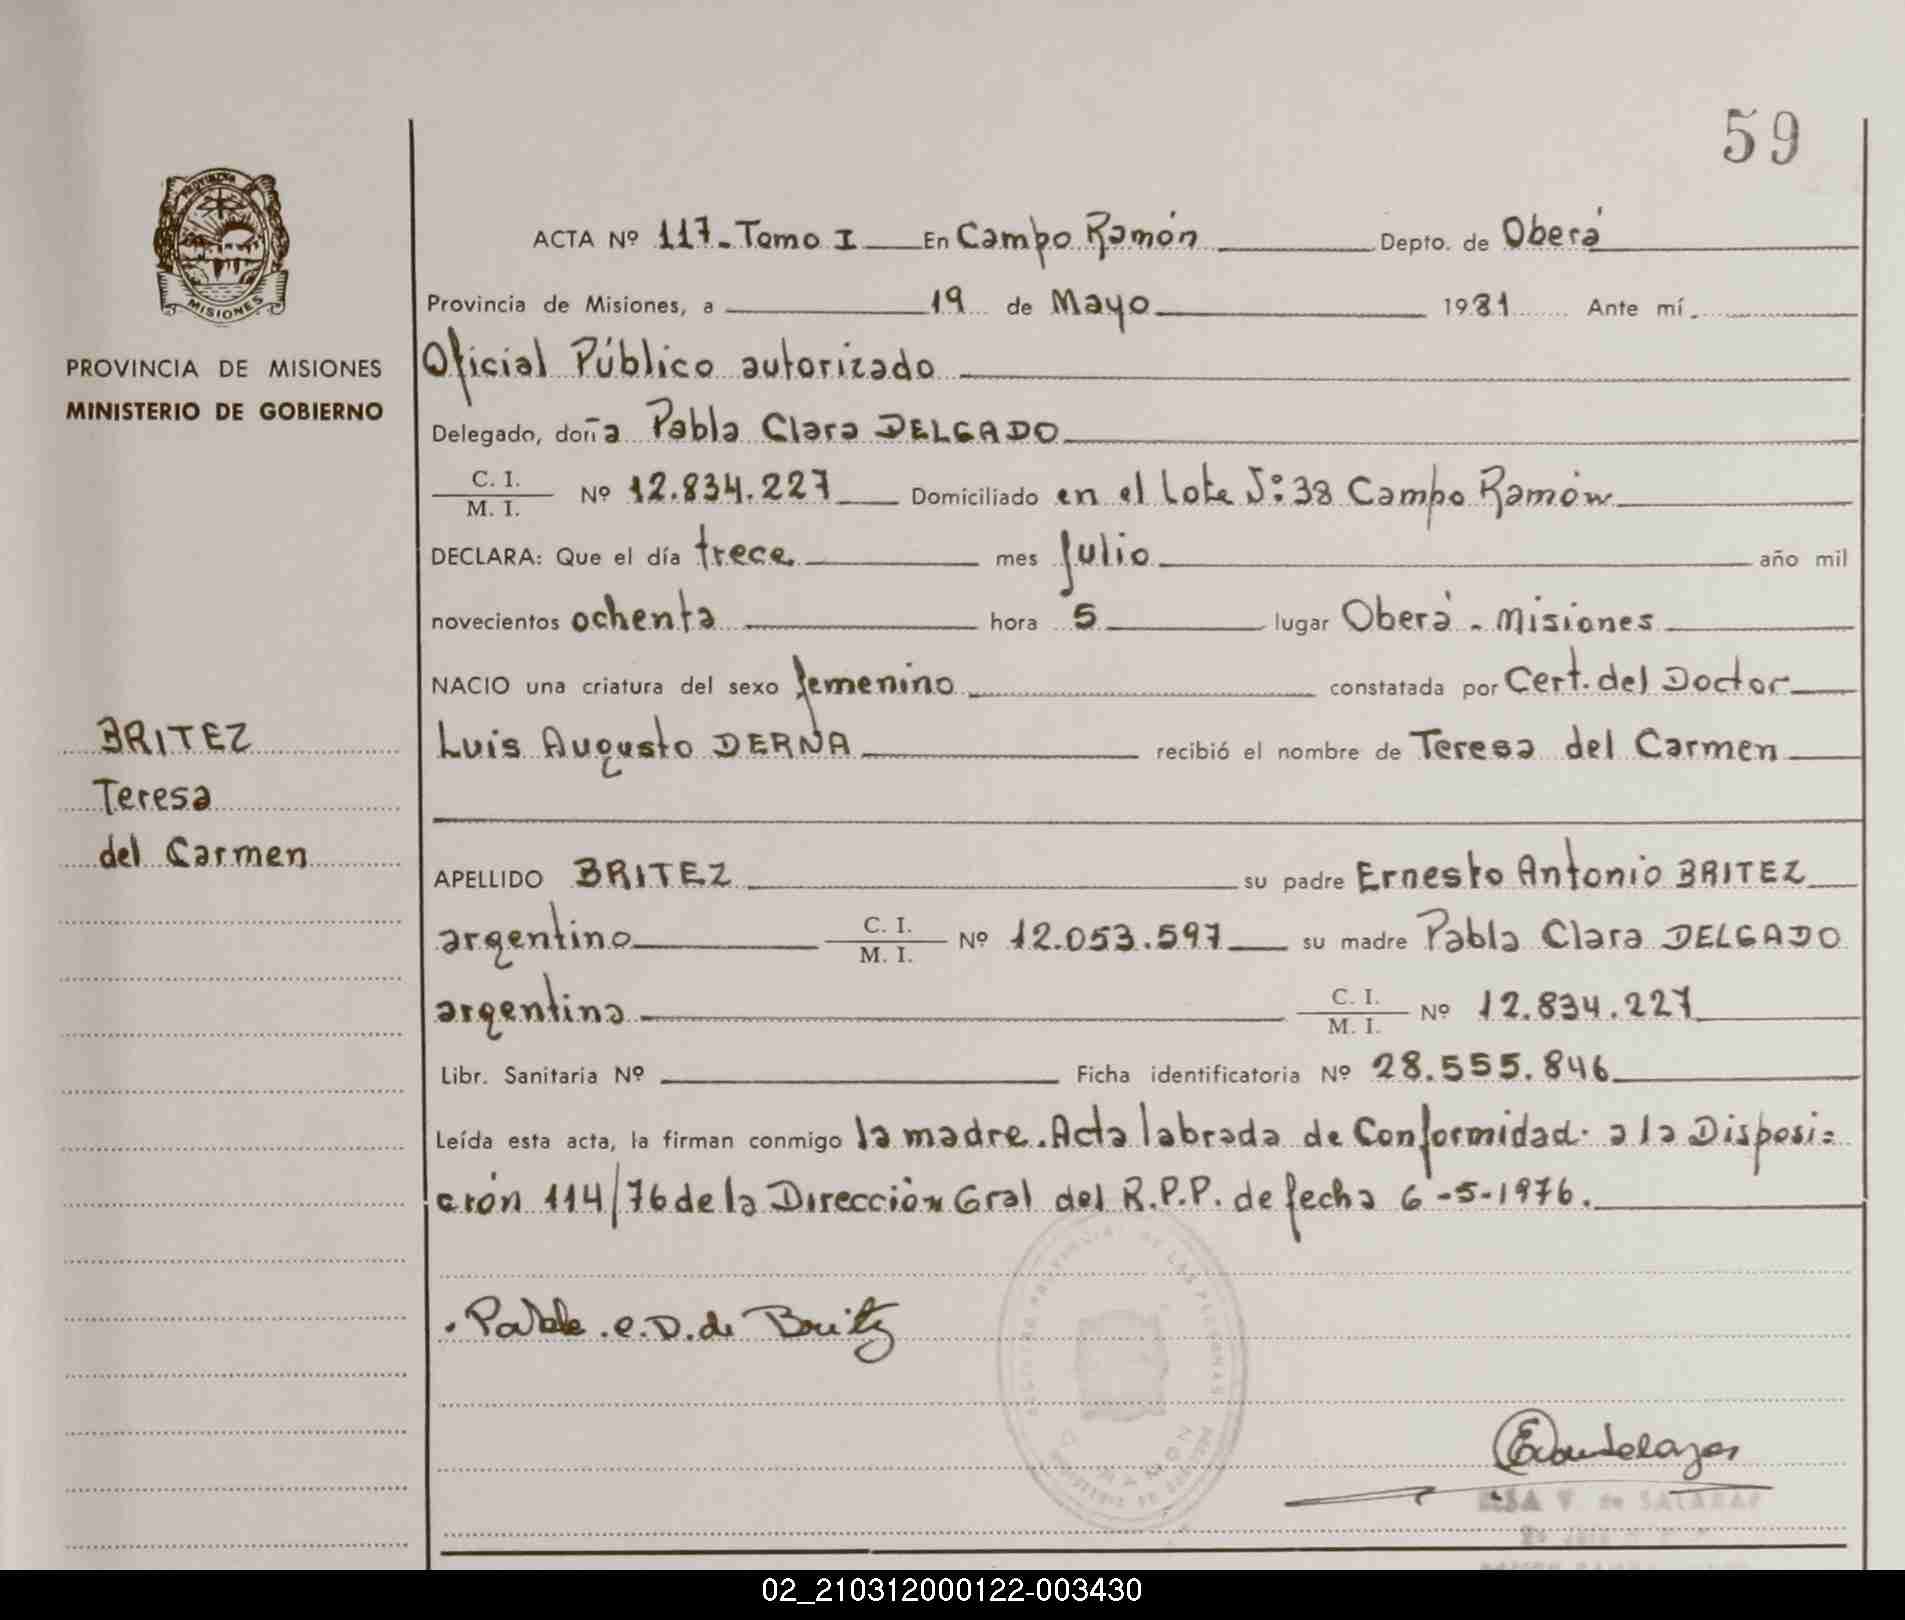 59
PROVINCIA
MISIONES
PROVINCIA DE MISIONES
MINISTERIO DE GOBIERNO
BRITEZ
Teresa
del Carmen
ACTA Nº 117. Tomo I En Campo Ramón Depto. de Oberá
Provincia de Misiones, a 19 de Mayo 1981 Ante mí.
Oficial Público autorizado
Delegado, doña Pabla Clara DELGADO
C. I.
M. I. Nº 12.834.227 Domiciliado en el Lote Nº: 38 Campo Ramón
DECLARA: Que el día trece mes Julio año mil
novecientos ochenta hora 5 lugar Oberá - Misiones
NACIO una criatura del sexo femenino constatada por Cert. del Doctor
Luis Augusto DERNA recibió el nombre de Teresa del Carmen
APELLIDO BRITEZ su padre Ernesto Antonio BRITEZ
argentino C. I.
M. I. Nº 12.053.597 su madre Pabla Clara DELGADO
argentina C. I.
M. I. Nº 12.834.227
Libr. Sanitaria Nº Ficha identificatoria Nº 28.555.846
Leída esta acta, la firman conmigo la madre. Acta labrada de Conformidad a la Disposi=
ción 114/76 de la Dirección Gral del R.P.P. de fecha 6-5-1976.
Pabla C. D. de Britez
RAMON
02_210312000122-003430